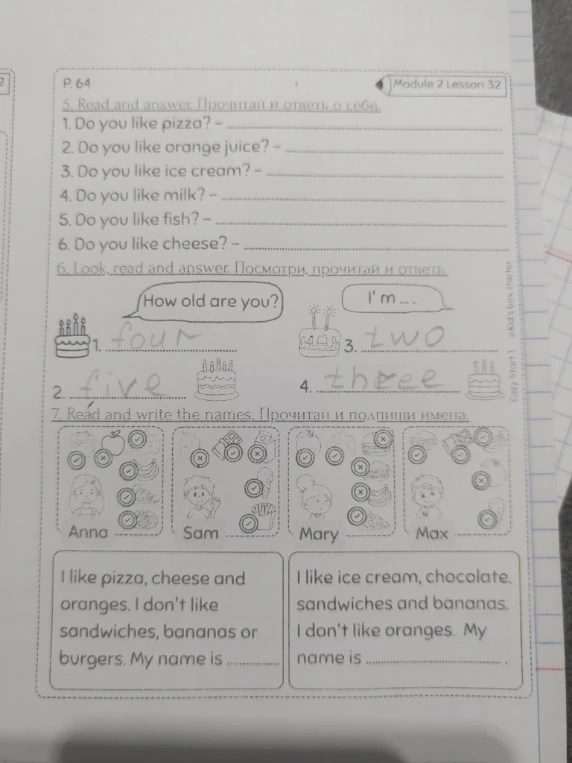 P. 64
Module 2 Lesson 32
5. Read and answer. Прочитай и ответь о себе.
1. Do you like pizza? -
2. Do you like orange juice? -
3. Do you like ice cream? -
4. Do you like milk? -
5. Do you like fish? -
6. Do you like cheese? -
6. Look, read and answer. Посмотри, прочитай и ответь.
How old are you?
I'm ... .
1. four
3. two
2. five
4. three
7. Read and write the names. Прочитай и подпиши имена.
Anna
Sam
Mary
Max
I like pizza, cheese and
oranges. I don't like
sandwiches, bananas or
burgers. My name is
I like ice cream, chocolate,
sandwiches and bananas.
I don't like oranges. My
name is .